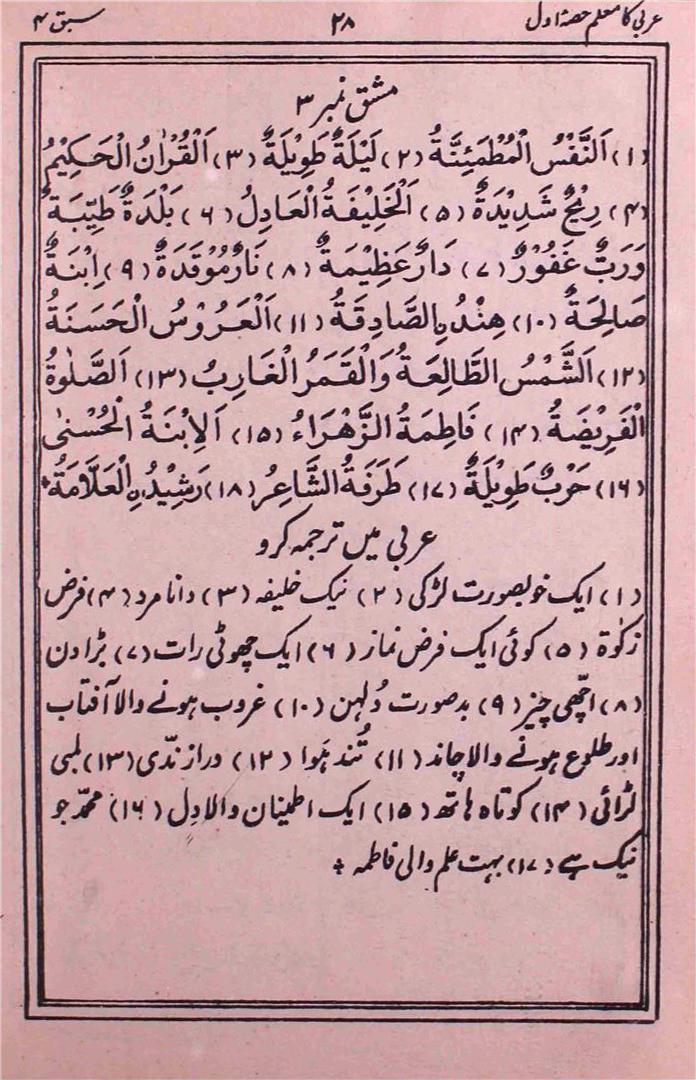 عربی کا معلم حصۂ اول ۲۸ سبق ۴
مشق نمبر ۳
(۱) اَلنَّفْسُ الْمُطْمَئِنَّةُ (۲) لَيْلَةٌ طَوِيْلَةٌ (۳) اَلْقُرْاٰنُ الْحَكِيْمُ
(۴) رِيْحٌ شَدِيْدَةٌ (۵) اَلْخَلِيْفَةُ الْعَادِلُ (۶) بَلْدَةٌ طَيِّبَةٌ
وَرَبٌّ غَفُوْرٌ (۷) دَارٌ عَظِيْمَةٌ (۸) نَارٌ مُوْقَدَةٌ (۹) اِبْنَةٌ
صَالِحَةٌ (۱۰) هِنْدُ نِ الصَّادِقَةُ (۱۱) اَلْعَرُوْسُ الْحَسَنَةُ
(۱۲) اَلشَّمْسُ الطَّالِعَةُ وَالْقَمَرُ الْغَارِبُ (۱۳) اَلصَّلٰوةُ
الْفَرِيْضَةُ (۱۴) فَاطِمَةُ الزَّهْرَاءُ (۱۵) اَلْاِبْنَةُ الْحُسْنٰى
(۱۶) حَرْبٌ طَوِيْلَةٌ (۱۷) طَرَفَةُ الشَّاعِرُ (۱۸) رَشِيْدُ نِ الْعَلَّامَةُ ٭
عربی میں ترجمہ کرو
(۱) ایک خوبصورت لڑکی (۲) نیک خلیفہ (۳) دانا مرد (۴) فرض
زکوٰۃ (۵) کوئی ایک فرض نماز (۶) ایک چھوٹی رات (۷) بڑا دن
(۸) اچھی چیز (۹) بدصورت دُلہن (۱۰) غروب ہونے والا آفتاب
اور طلوع ہونے والا چاند (۱۱) تُند ہَوا (۱۲) دراز ندّی (۱۳) لمبی
لڑائی (۱۴) کوتاہ ہاتھ (۱۵) ایک اطمینان والا دِل (۱۶) محمّد جو
نیک ہے (۱۷) بہت علم والی فاطمہ ٭